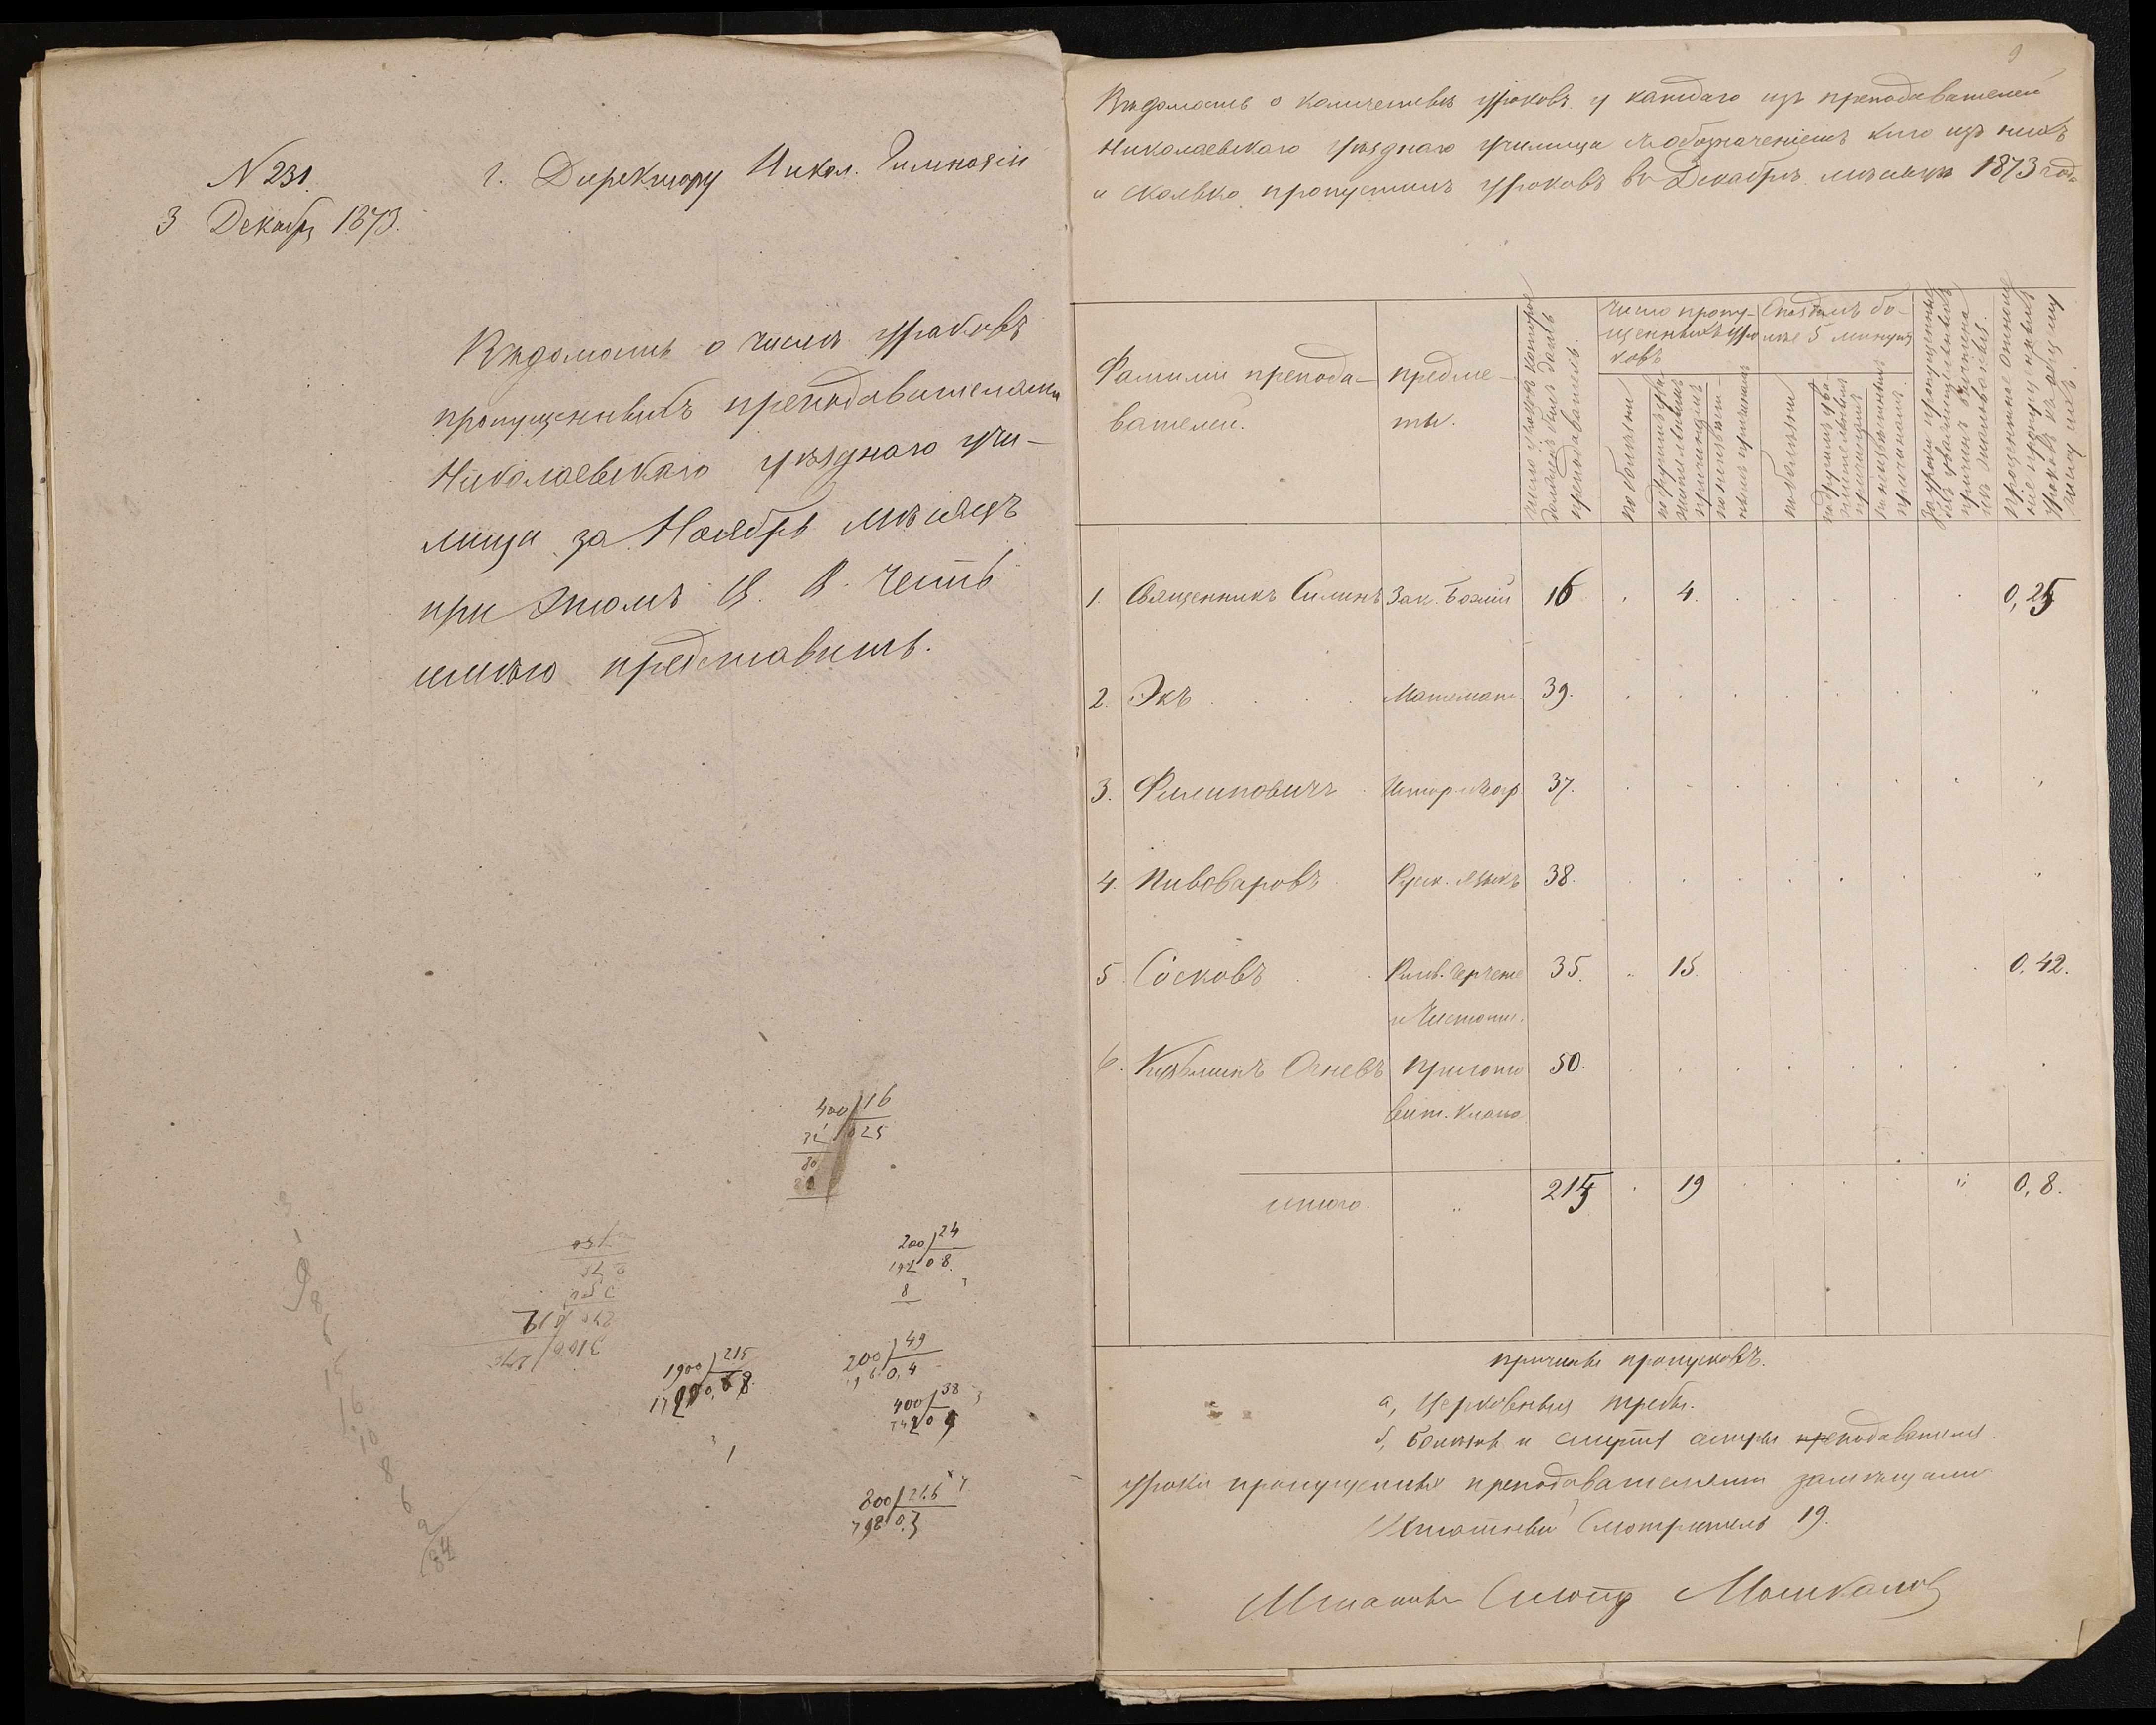 N 231.
3 Декабря 1873.
г. Директору Никол. Гимназіи
Вѣдомость о числѣ уроковъ
пропущенныхъ преподавателями
Николаевскаго уѣзднаго учи-
лища за Ноябрь мѣсяцъ
при этомъ В. В. честь
имѣю представить.
400 16
32 025
80
80
200 24
192 0 8.
8
1900 215
1720 0,8.
200 49
196 0,4
400 38
800 21.6
0.3
15
16
10
8
6
2
84
9
Вѣдомость о количествѣ уроковъ у каждаго изъ преподавателей
Николаевскаго уѣзднаго училища съ обозначеніемъ кто изъ нихъ
и сколько пропустилъ уроковъ въ Декабрѣ мѣсяцѣ 1873 года
Фамиліи препода-
вателей.
предме-
ты.
число уроковъ которое
долженъ былъ дать
преподаватель.
Число пропу-
щенныхъ уро
ковъ
Опоздалъ бо-
лѣе 5 минутъ
по болѣзни
по другимъ ува-
жительнымъ
причинамъ
по неизвѣст-
нымъ причинамъ
по болѣзни
по другимъ ува-
жительнымъ
причинамъ
по неизвѣстнымъ
причинамъ
За уроки пропущенные
причинъ вычтено
изъ жалованья.
Процентное отноше
ніе пропущенныхъ
уроковъ къ общему
числу ихъ.
1. Священникъ Силинъ Зак. Божій 16 . 4. . . . . . 0,25
2. Экъ . . . Математ. 39. . . . . . . . "
3. Филиповичъ . Истор. и Геогр 37. . . . . . . . "
4. Пивоваровъ Руск. Языкъ 38. . . . . . . . "
5. Сосковъ . . Рисв. Черчене 35. " 15. . . . . . 0,42.
и Чистопис.
6. Кузьминъ Огневъ Пригото 50. . . . . . . . .
вит. класс
итого. " 215 . 19 . . . . " 0,8.
причины пропусковъ.
а, Церковныя требы.
б, Болѣзнь и смерть сестры преподавателя.
уроки пропущенные преподавателями замѣщали
Штатный Смотритель 19.
Штатный Смотр Мошкалов